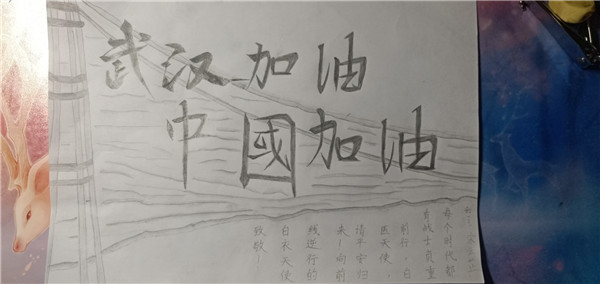 武汉加油
中國加油
每个时代都
有战士负重
前行,白
医天使,
请平安归
来!向前
线逆行的
白衣天使
致敬!